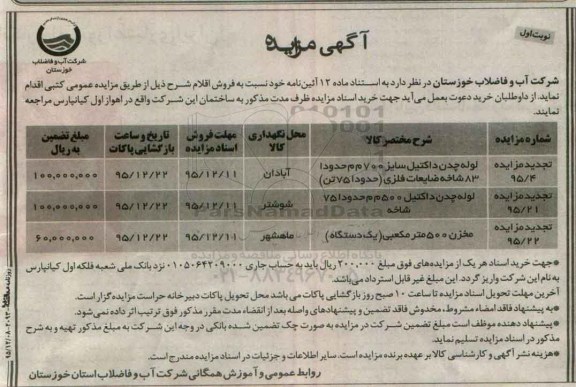 نوبت اول
آگهی مزایده
شرکت آب و فاضلاب
خوزستان
شرکت آب و فاضلاب خوزستان در نظر دارد به استناد ماده ۱۲ آئین‌نامه خود نسبت به فروش اقلام شرح ذیل از طریق مزایده عمومی کتبی اقدام
نماید. از داوطلبان خرید دعوت بعمل می‌آید جهت خرید اسناد مزایده ظرف مدت مذکور به ساختمان این شرکت واقع در اهواز اول کیانپارس مراجعه
نمایند.
شماره مزایده شرح مختصر کالا محل نگهداری کالا مهلت فروش اسناد مزایده تاریخ و ساعت بازگشایی پاکات مبلغ تضمین به ریال
تجدید مزایده ۹۵/۴ لوله چدن داکتیل سایز ۷۰۰ م م حدودا ۸۳ شاخه ضایعات فلزی (حدودا ۷۵ تن) آبادان ۹۵/۱۲/۱۱ ۹۵/۱۲/۲۲ ۱۰۰,۰۰۰,۰۰۰
تجدید مزایده ۹۵/۲۱ لوله چدن داکتیل ۵۰۰ م م حدودا ۷۵ شاخه شوشتر ۹۵/۱۲/۱۱ ۹۵/۱۲/۲۲ ۱۰۰,۰۰۰,۰۰۰
تجدید مزایده ۹۵/۲۲ مخزن ۵۰۰ متر مکعبی (یک دستگاه) ماهشهر ۹۵/۱۲/۱۱ ۹۵/۱۲/۲۲ ۶۰,۰۰۰,۰۰۰
*جهت خرید اسناد هر یک از مزایده‌های فوق مبلغ ۲۰۰،۰۰۰ ریال باید به حساب جاری ۰۱۰۵۰۶۴۲۰۹۰۰۰ نزد بانک ملی شعبه فلکه اول کیانپارس
به نام این شرکت واریز گردد. این مبلغ غیر قابل استرداد می‌باشد.
آخرین مهلت تحویل اسناد مزایده تا ساعت ۱۰ صبح روز بازگشایی پاکات می باشد محل تحویل پاکات دبیرخانه حراست مزایده گزار است.
*به پیشنهاد فاقد امضاء مشروط، مخدوش فاقد تضمین و پیشنهادهای واصله بعد از انقضاء مدت مقرر مذکور فوق ترتیب اثر داده نمی‌شود.
*پیشنهاد دهنده موظف است مبلغ تضمین شرکت در مزایده به صورت چک تضمین شده بانکی در وجه این شرکت به مبلغ مذکور تهیه و به شرح
مذکور در اسناد مزایده تسلیم نماید.
*هزینه نشر آگهی و کارشناسی کالا بر عهده برنده مزایده است. سایر اطلاعات و جزئیات در اسناد مزایده مندرج است.
روابط عمومی و آموزش همگانی شرکت آب و فاضلاب استان خوزستان